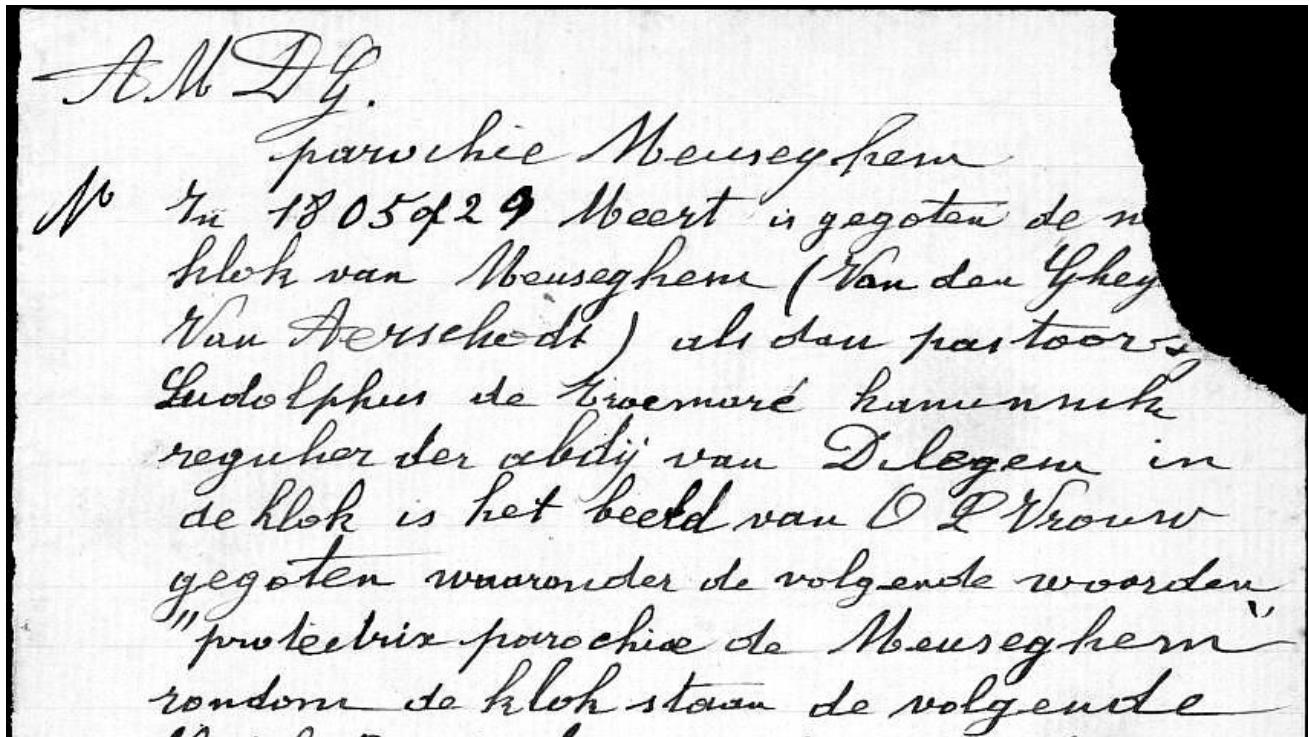 A M D G.
parochie Meuseghem
N° In 1805 of 29 Meert is gegoten de
klok van Meuseghem (Van den Ghey
Van Aerschodt) als dan pastoor
Ludolphus de kanunnik
regulier der abdij van Dilegem in
de klok is het beeld van O L Vrouw
gegoten waaronder de volgende woorden
"protectrix parochiæ de Meuseghem"
rondom de klok staan de volgende